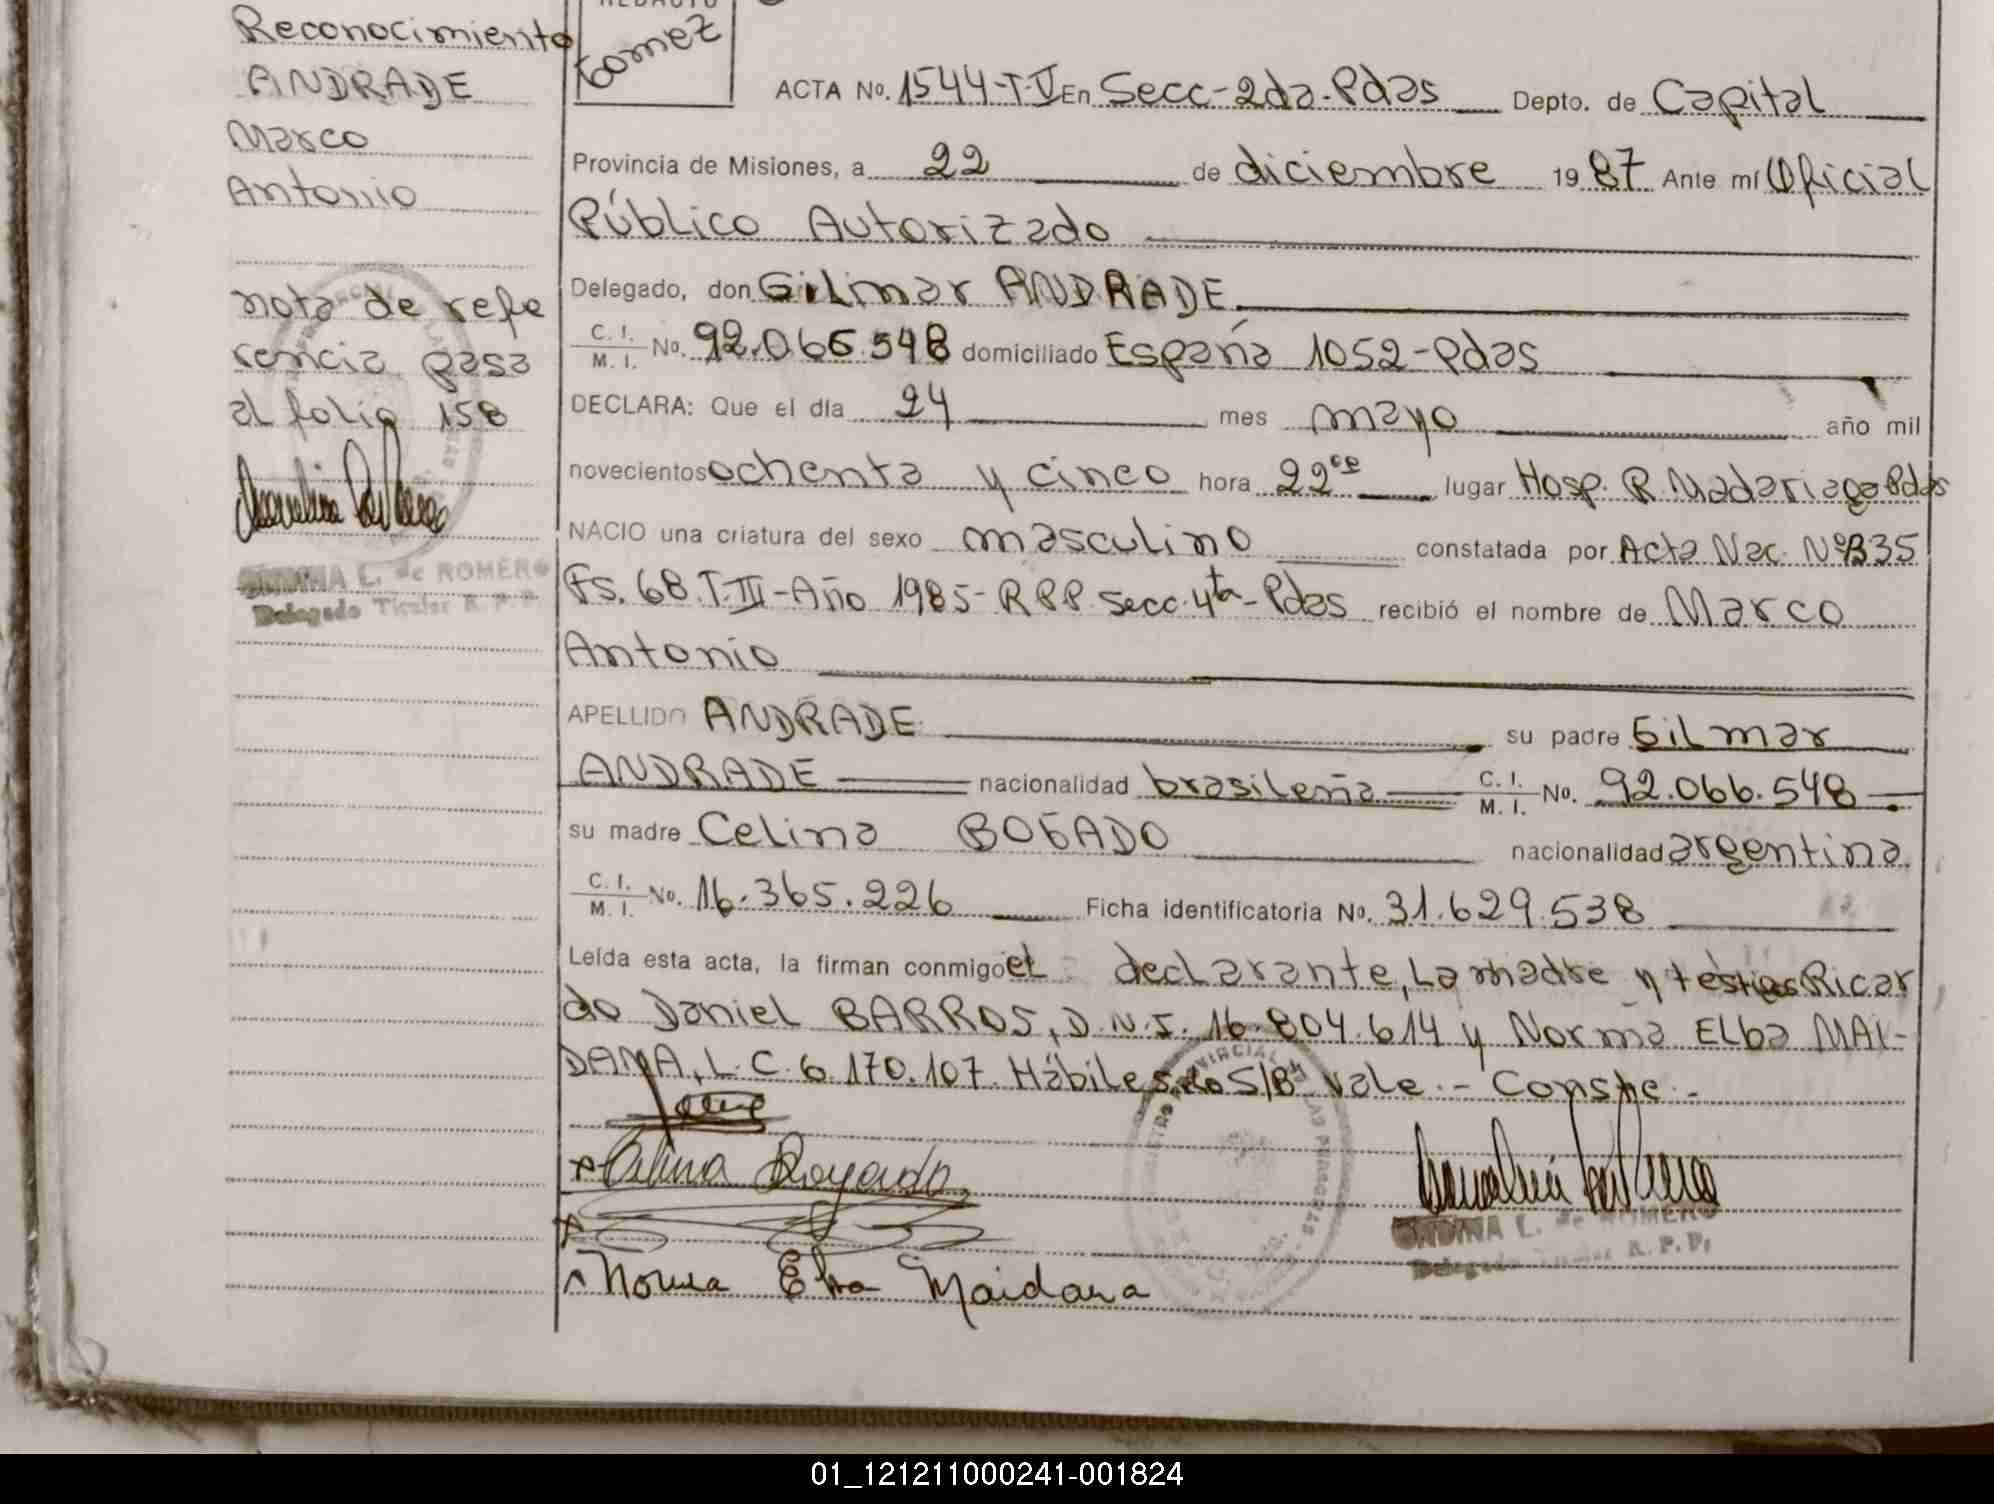 Reconocimiento
ANDRADE
Marco
Antonio
nota de refe
rencia pasa
al folio 158
ONDINA L. de ROMERO
Delegado Titular R. P. P.
REDACTO
Gomez
ACTA No. 1544-T-V En Secc-2da-Pdas Depto. de Capital
Provincia de Misiones, a 22 de diciembre 19 87 Ante mí Oficial
Público Autorizado
Delegado, don Gilmar ANDRADE
C. I. M. I. No. 92.066.548 domiciliado España 1052-Pdas
DECLARA: Que el día 24 mes mayo año mil
novecientos ochenta y cinco hora 22 lugar Hosp. R. Madariaga Pdas
NACIO una criatura del sexo masculino constatada por Acta Nac. Nº 835
Fs. 68. T-III-Año 1985-RPP. Secc. 4ta-Pdas recibió el nombre de Marco
Antonio
APELLIDO ANDRADE su padre Gilmar
ANDRADE nacionalidad brasileña C. I. M. I. No. 92.066.548
su madre Celina BOGADO nacionalidad argentina
C. I. M. I. No. 16.365.226 Ficha identificatoria No. 31.629.538
Leída esta acta, la firman conmigo el declarante, La madre y testigos Ricar
do Daniel BARROS, D.N.I. 16.804.614 y Norma ELba MAI-
DANA, L.C. 6.170.107. Hábiles. S/B vale.- Conste.-
Celina Bogado
Norma Elba Maidana
ONDINA L. de ROMERO
Delegado Titular R. P. P.
01_121211000241-001824